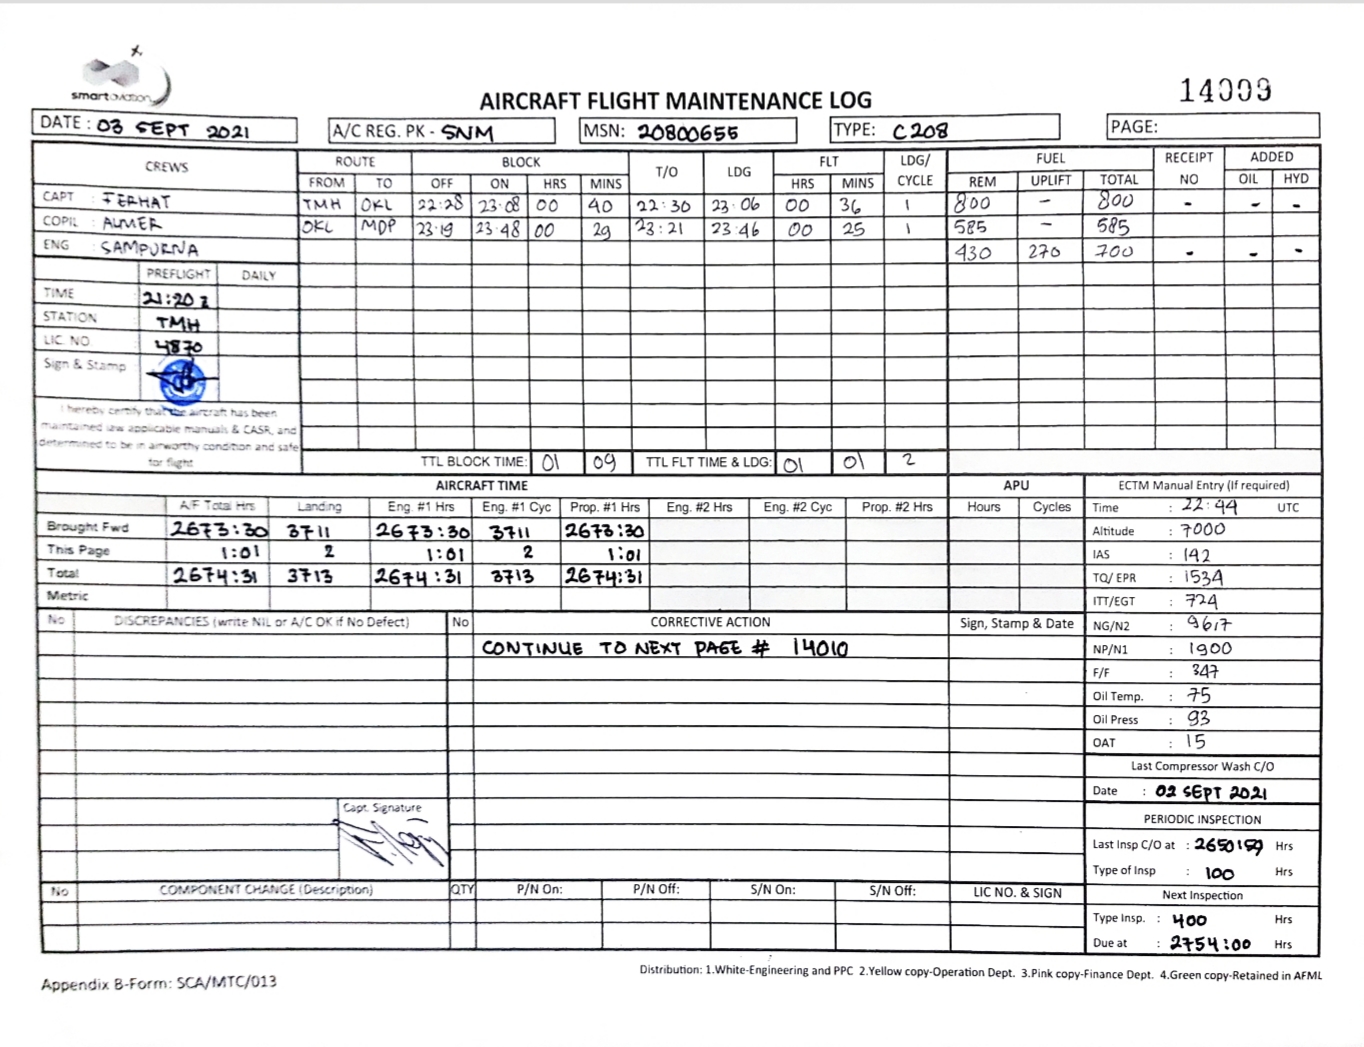 smart aviation
14009
AIRCRAFT FLIGHT MAINTENANCE LOG
DATE : 03 SEPT 2021 A/C REG. PK - SNM MSN: 20800655 TYPE: C208 PAGE:
CREWS ROUTE BLOCK T/O LDG FLT LDG/ CYCLE FUEL RECEIPT NO ADDED
FROM TO OFF ON HRS MINS HRS MINS REM UPLIFT TOTAL OIL HYD
CAPT : FERHAT TMH OKL 22:28 23:08 00 40 22:30 23:06 00 36 1 800 - 800 - - -
COPIL : ALMER OKL MDP 23:19 23:48 00 29 23:21 23:46 00 25 1 585 - 585
ENG : SAMPURNA 430 270 700 - - -
PREFLIGHT DAILY
TIME 21:20 z
STATION TMH
LIC. NO 4870
Sign & Stamp
I hereby certify that the aircraft has been
maintained law applicable manuals & CASR, and
determined to be in airworthy condition and safe
for flight
TTL BLOCK TIME: 01 09 TTL FLT TIME & LDG: 01 01 2
AIRCRAFT TIME APU ECTM Manual Entry (If required)
A/F Total Hrs Landing Eng. #1 Hrs Eng. #1 Cyc Prop. #1 Hrs Eng. #2 Hrs Eng. #2 Cyc Prop. #2 Hrs Hours Cycles Time : 22:44 UTC
Brought Fwd 2673:30 3711 2673:30 3711 2673:30 Altitude : 7000
This Page 1:01 2 1:01 2 1:01 IAS : 142
Total 2674:31 3713 2674:31 3713 2674:31 TQ/ EPR : 1534
Metric ITT/EGT : 724
No DISCREPANCIES (write NIL or A/C OK if No Defect) No CORRECTIVE ACTION Sign, Stamp & Date NG/N2 : 96.7
CONTINUE TO NEXT PAGE # 14010 NP/N1 : 1900
F/F : 347
Oil Temp. : 75
Oil Press : 93
OAT : 15
Last Compressor Wash C/O
Date : 02 SEPT 2021
Capt. Signature
PERIODIC INSPECTION
Last Insp C/O at : 2650:59 Hrs
Type of Insp : 100 Hrs
No COMPONENT CHANGE (Description) QTY P/N On: P/N Off: S/N On: S/N Off: LIC NO. & SIGN Next Inspection
Type Insp. : 400 Hrs
Due at : 2754:00 Hrs
Distribution: 1.White-Engineering and PPC 2.Yellow copy-Operation Dept. 3.Pink copy-Finance Dept. 4.Green copy-Retained in AFML
Appendix B-Form: SCA/MTC/013